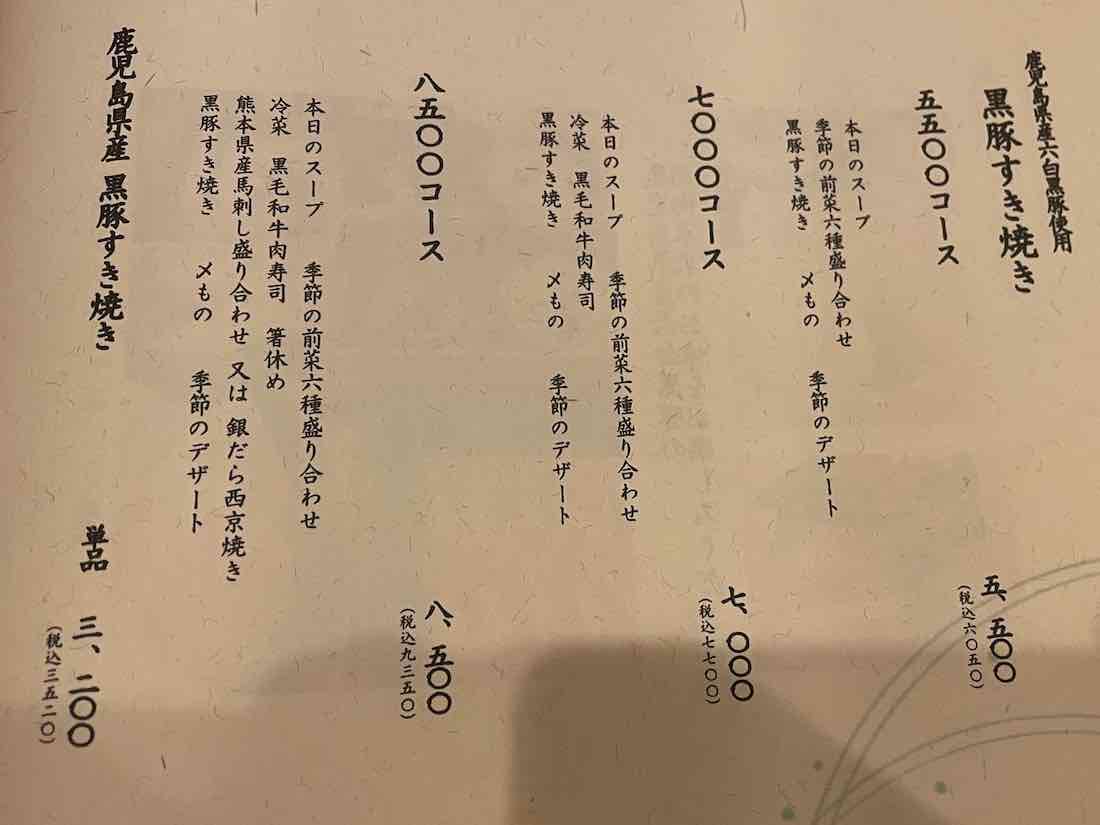 鹿児島県産六白黒豚使用
黒豚すき焼き
五五〇〇コース
本日のスープ
季節の前菜六種盛り合わせ
黒豚すき焼き　〆もの　季節のデザート
五、五〇〇
（税込六〇五〇）
七〇〇〇コース
本日のスープ　季節の前菜六種盛り合わせ
冷菜　黒毛和牛肉寿司
黒豚すき焼き　〆もの　季節のデザート
七、〇〇〇
（税込七七〇〇）
八五〇〇コース
本日のスープ　季節の前菜六種盛り合わせ
冷菜　黒毛和牛肉寿司　箸休め
熊本県産馬刺し盛り合わせ 又は 銀だら西京焼き
黒豚すき焼き　〆もの　季節のデザート
八、五〇〇
（税込九三五〇）
鹿児島県産 黒豚すき焼き　単品
三、二〇〇
（税込三五二〇）